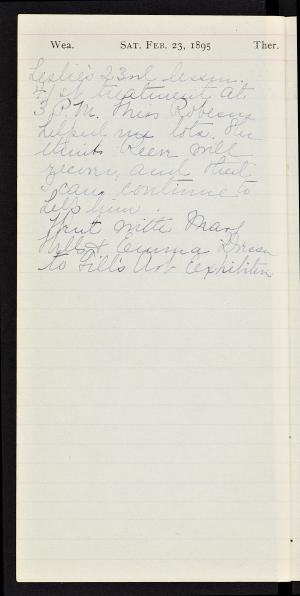 Wea. SAT. FEB. 23, 1895 Ther.
Leslie's 23rd lesson.
41st treatment at
3 P.M. Miss Roberns
helped me lots. She
thinks Keen will
and that
I can continue to
help him.
Went with Mary
Hills & Emma
to Gill's Art Exhibition